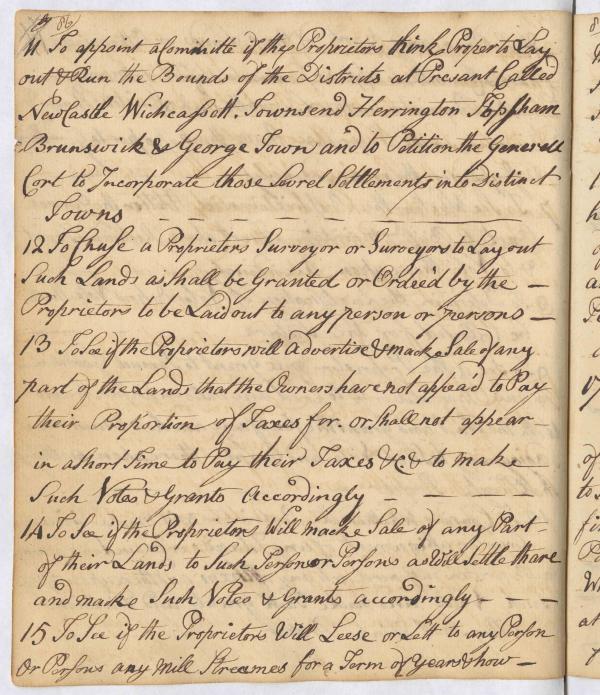 86
11 To appoint a Comihitte if the Proprietors think Proper to Lay
out & Run the Bounds of the Districts at Presant Called
NewCastle Wicheassett. Townsend Herrington Topsham
Brunswick & George Town and to Petition the Generell
Cort to Incorporate those Sevrel Settlements into Distinct
Towns — — — — — —
12 To Chuse a Proprieters Surveyor or Surveyors to Lay out
Such Lands as Shall be Granted or Ordeèd by the —
Proprietors to be Laid out to any person or persons —
13 To See if the Proprietors will Advertise & make Sale of any
part of the Lands that the Owners have not appeàd to Pay
their Proportion of Taxes for. or Shall not appear —
in a Short Time to Pay their Taxes &C. & to make
Such Votes & Grants Accordingly — — — —
14 To See if the Proprietors Will make Sale of any Part
of their Lands to Such Person or Persons as Will Settle thare
and make Such Votes & Grants accordingly — — —
15 To See if the Proprietors Will Leese or Lett to any Person
Or Persons any Mill Streames for a Term of Years & how —